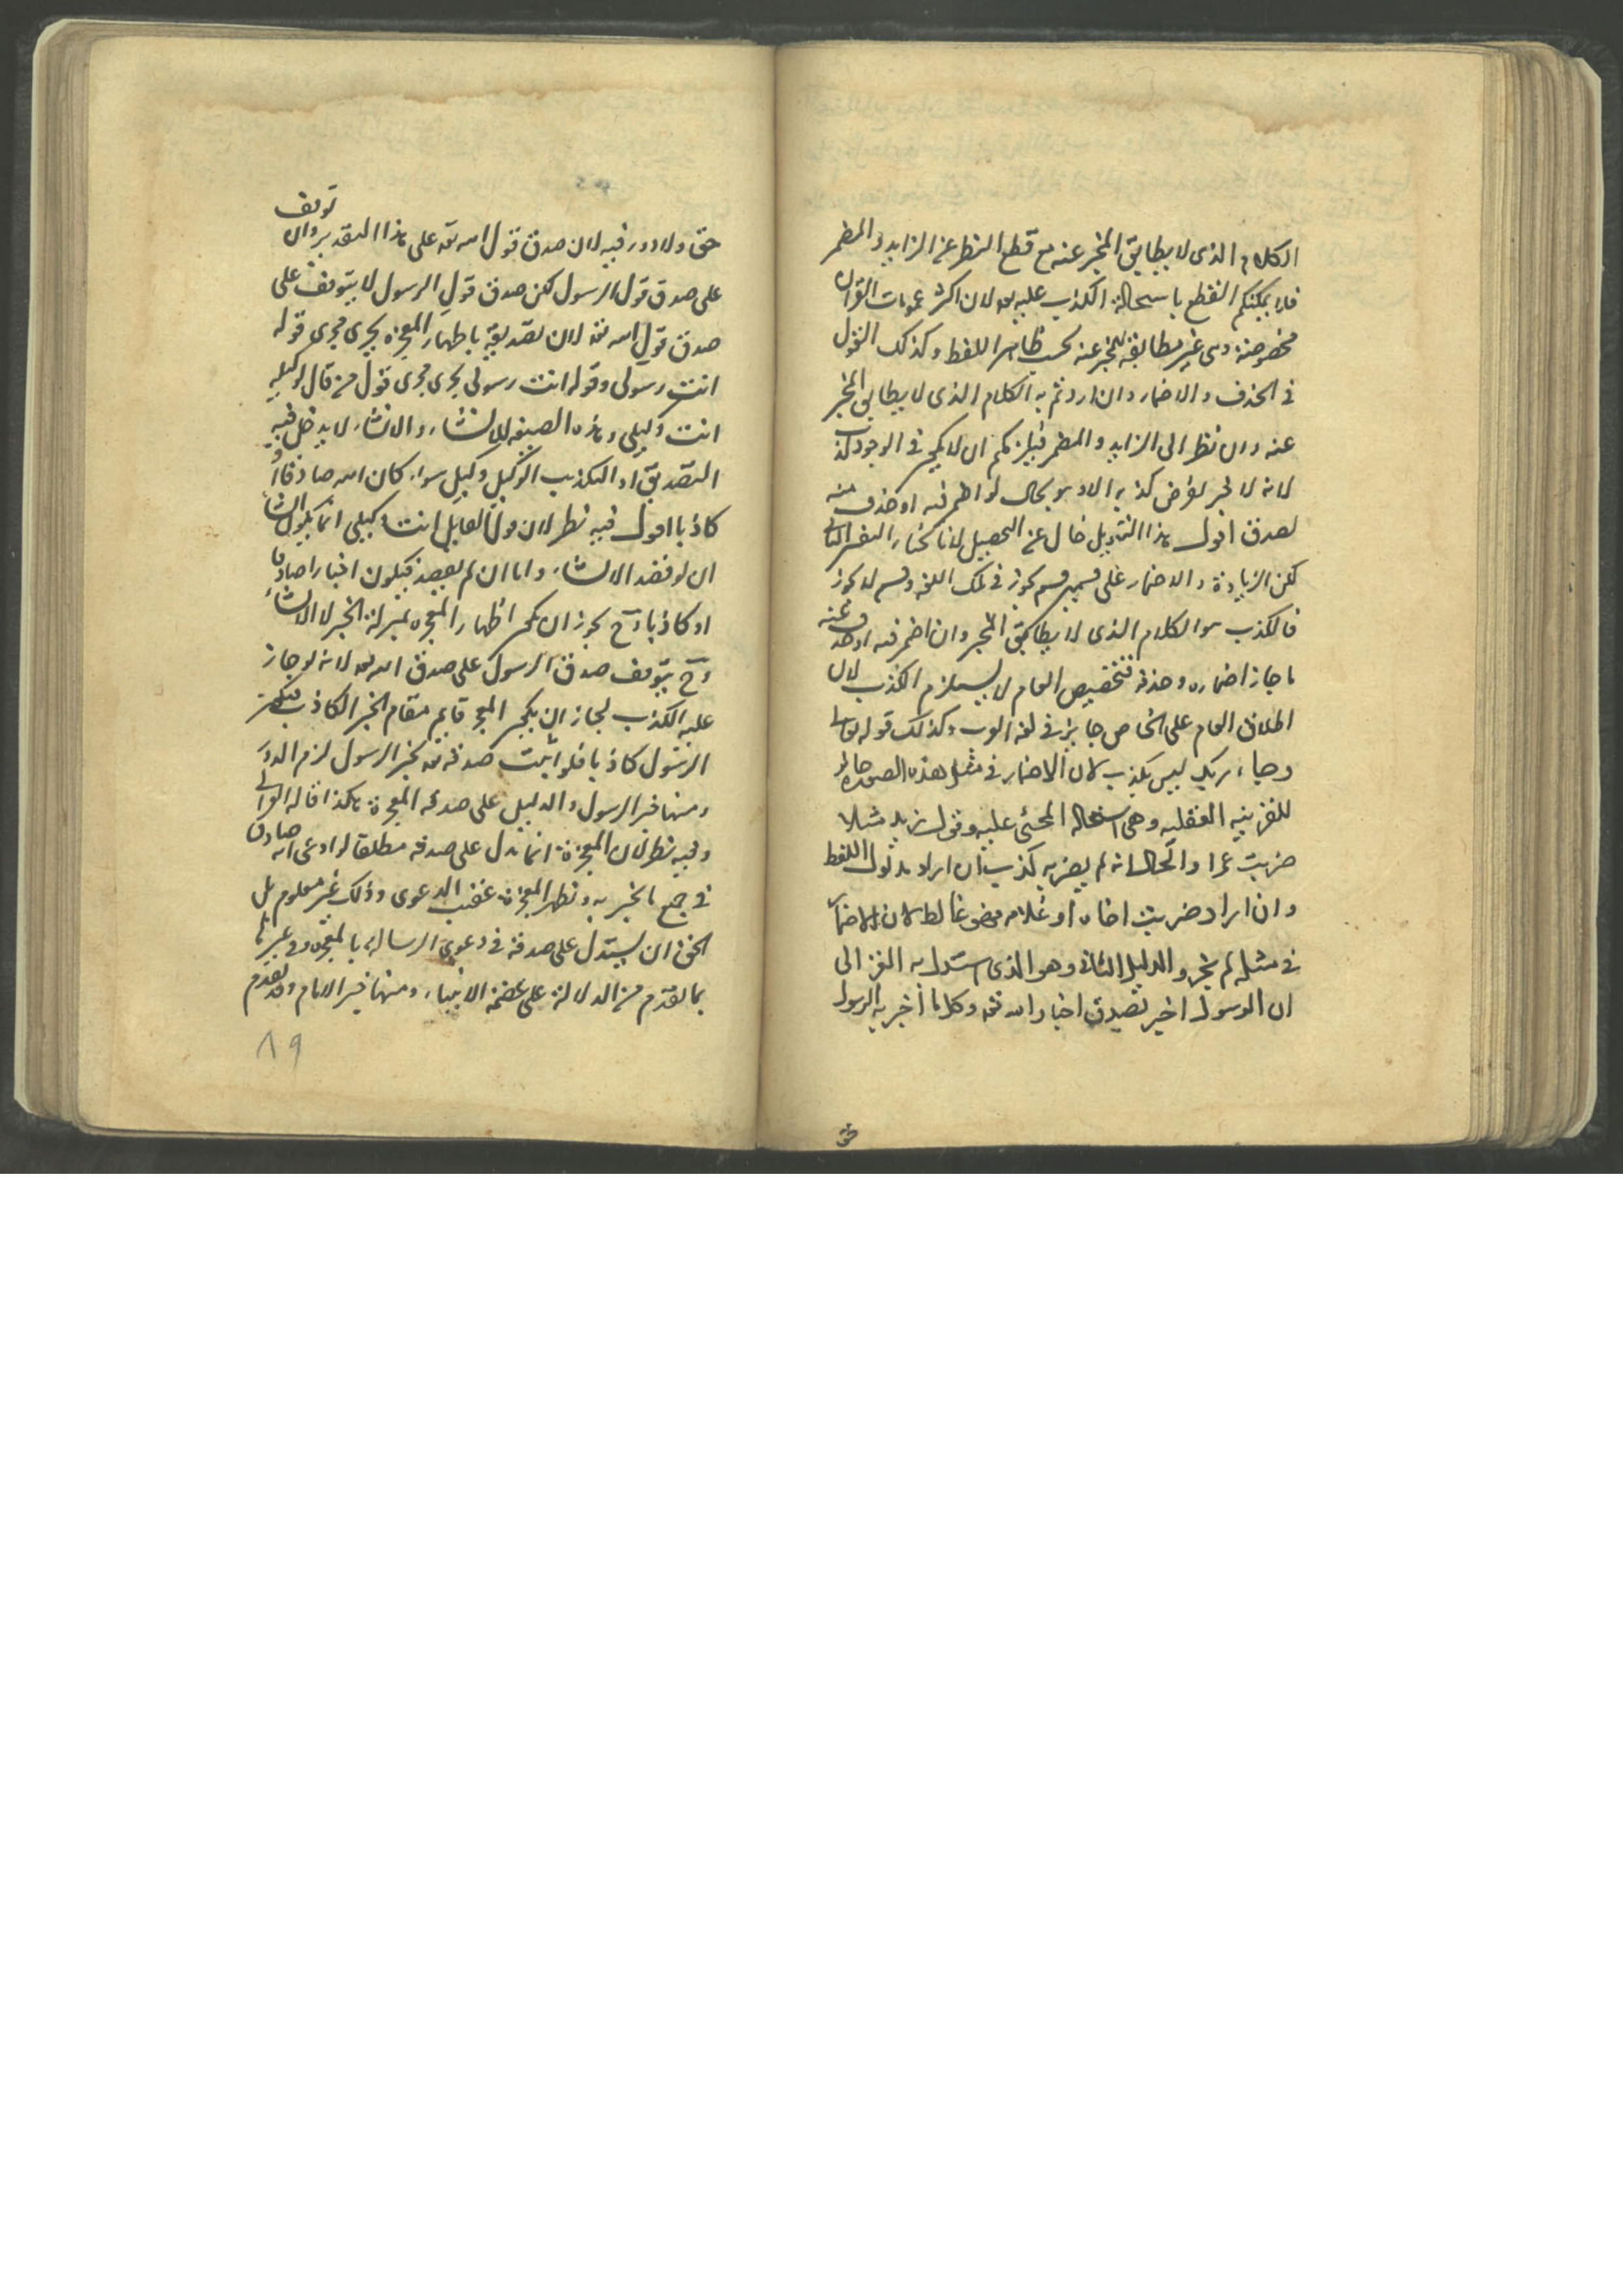 الكلام الذى لا يطابق المخبر عنه مع قطع النظر عن الزايد والمضمر
فلا يمكنكم القطع باستحالة الكذب عليه لان اكثر عمومات القران
مخصوصة وهى غير مطابقة للمخبر عنه بحسب ظاهر اللفظ وكذلك القول
فى الحذف والاضمار وان اردتم به الكلام الذى لا يطابق المخبر
عنه وان نظر الى الزايد والمضمر فيلزمكم ان لا يكون فى الوجود كذب
لانه لا خبر يفرض كذبه الا وهو بحال لو اضمر فيه او حذف منه
لصدق اقول هذا التهويل خال عن التحصيل لانا نختار التفسير الثانى
لكن الزيادة والاضمار على قسمين قسم يجوز فى تلك اللغة وقسم لا يجوز
فالكذب هو الكلام الذى لا يطابق المخبر وان اضمر فيه او حذف عنه
ما جاز اضماره وحذفه فتخصيص العام لا يستلزم الكذب لان
اطلاق العام على الخاص جايز فى لغة العرب وكذلك قوله تعالى
وجاء ربك ليس بكذب لان الاضمار فى مثل هذه الصورة جايز
للقرينة العقلية وهى استحالة المجئى عليه وقول زيد مثلا
ضربت عمرا والحال انه لم يضربه كذب ان اراد مدلول اللفظ
وان اراد ضربت اخاه او غلامه فهو غالط لان الاضمار
فى مثله لم يجز والدليل الثانى وهو الذى استدل به الغزالى
ان الرسول اخبر بصدق اخبار الله تعه وكل ما اخبر به الرسول
حق ولا دور فيه لان صدق قول الله تعه على هذا التقدير وان توقف
على صدق قول الرسول لكن صدق قول الرسول لا يتوقف على
صدق قول الله تعه لان تصديقه باظهار المعجزه يجرى مجرى قوله
انت رسولى وقوله انت رسولى يجرى مجرى قول من قال لوكيله
انت وكيلى وهذه الصيغه للانشاء والانشاء لا يدخل فيه
التصديق او التكذيب الوكيل وكيل سواء كان الله صادقا او
كاذبا اقول فيه نظر لان قول القايل انت وكيلى انما يكون انشاء
ان لو قصد الانشاء واما ان لم يقصد فيكون اخبارا صادقا
او كاذبا وح يجوز ان يكون اظهار المعجزه بمنزلة الخبر لا الانشاء
وح يتوقف صدق الرسول على صدق الله تعه لانه لو جاز
عليه الكذب لجاز ان يكون المعجز قايم مقام الخبر الكاذب فيكون
الرسول كاذبا فلو اثبت صدقه تعه بخبر الرسول لزم الدور
ومنها خبر الرسول والدليل على صدقه المعجزة هكذا قاله الغزالى
وفيه نظر لان المعجزة انما تدل على صدقه مطلقا لو ادعى انه صادق
فى جميع ما يخبر به وتظهر المعجزة عقيب الدعوى وذلك غير معلوم بل
الحق ان يستدل على صدقه فى دعوى الرسالة بالمعجزه وفى غيرها
بما تقدم من الدلالة على عصمة الانبياء ومنها خبر الامام وقد تقدم
٨٩